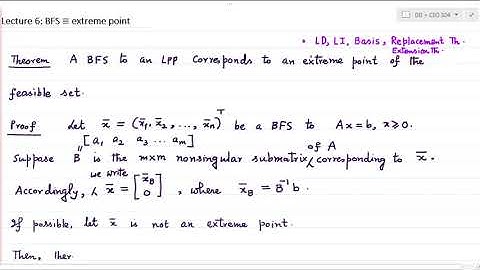 Lecture 6: BFS ≡ extreme point
• LD, LI, Basis, Replacement Th.
Extension Th.
Theorem A BFS to an LPP corresponds to an extreme point of the
feasible set.
Proof Let x̄ = (x̄₁, x̄₂, ..., x̄ₙ)ᵀ be a BFS to Ax=b, x≥0.
[a₁ a₂ a₃ ... aₘ]
Suppose B is the m×m nonsingular submatrix of A corresponding to x̄.
Accordingly, we write x̄ = [x̄_B 0], where x̄_B = B⁻¹b.
If possible, let x̄ is not an extreme point.
Then, ther